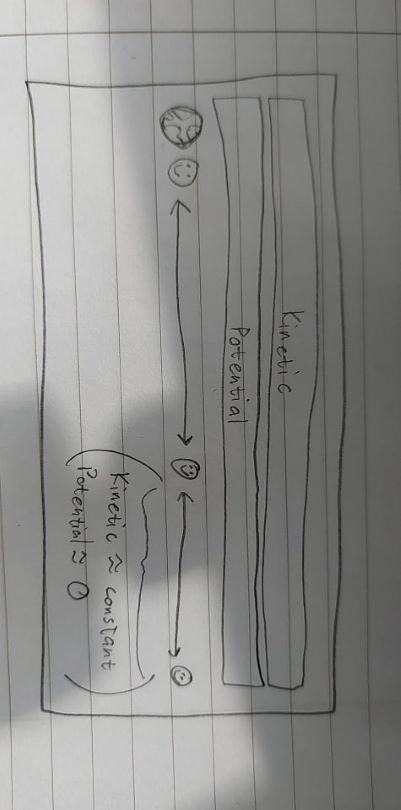 Kinetic
Potential
Kinetic ≈ constant
Potential ≈ 0